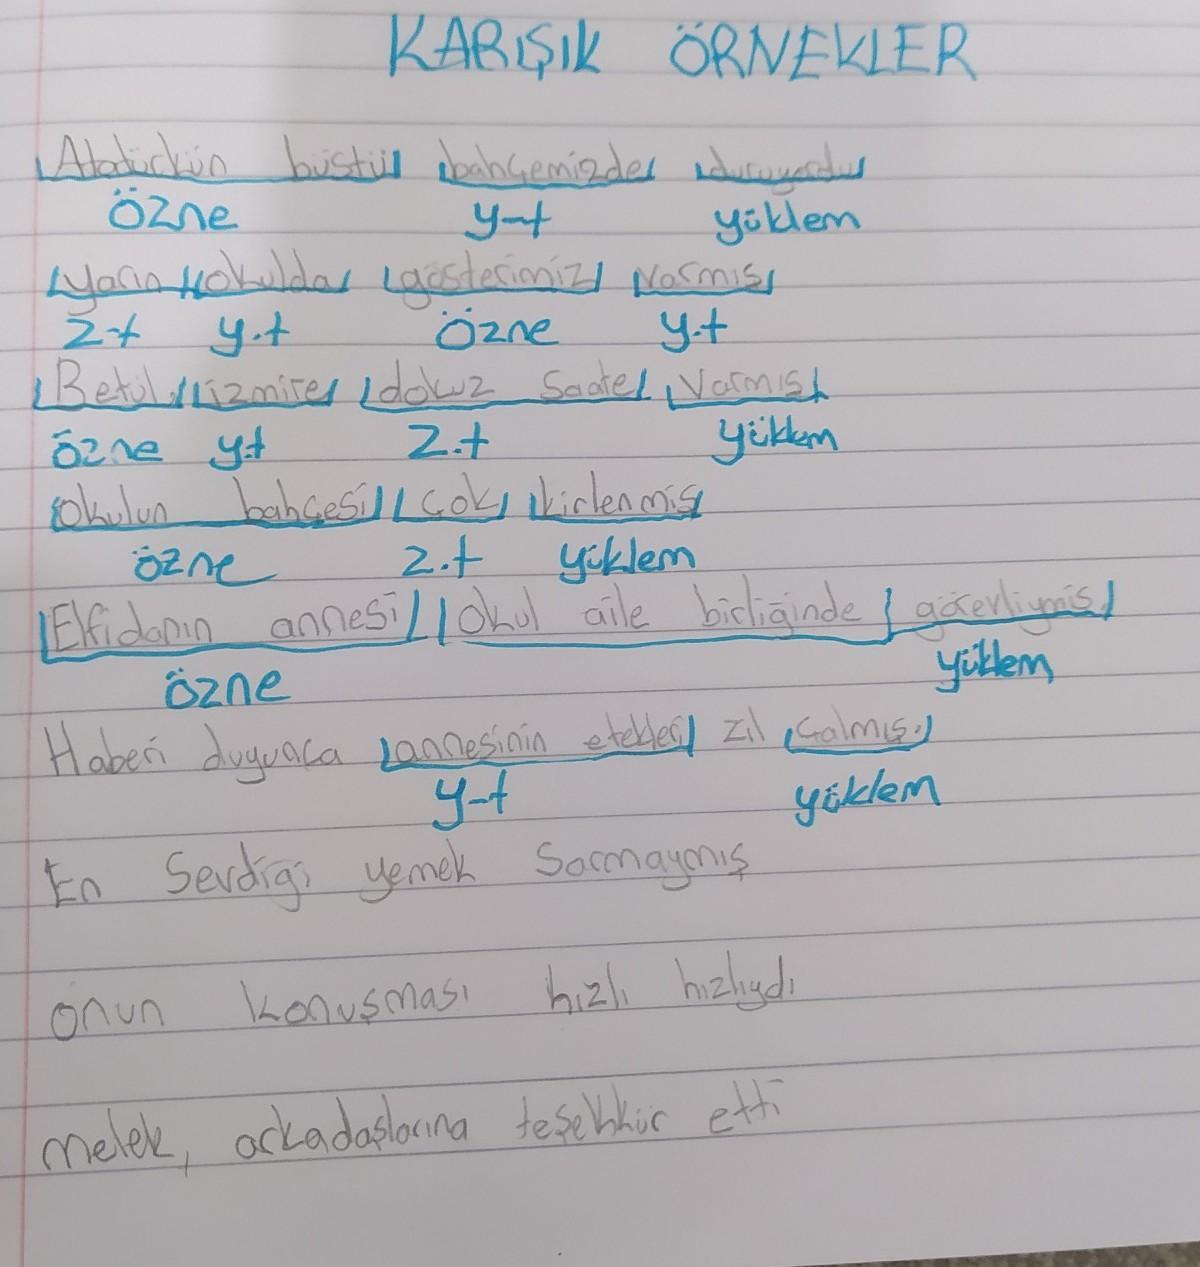 KARIŞIK ÖRNEKLER
Atatürkün büstü bahçemizde duruyordu
Özne y-t yüklem
yarın okulda gösterimiz varmış
Z-t y.t Özne y.t
Betül, izmire dokuz saate varmış
özne y.t Z.t yüklem
Okulun bahçesi çok kirlenmiş
özne z.t yüklem
Elfidanın annesi Okul aile birliğinde görevliymiş.
Özne yüklem
Haberi duyunca annesinin etekleri zil çalmış.
y-t yüklem
En Sevdiği yemek Sarmaymış
onun konuşması hızlı hızlıydı
melek, arkadaşlarına teşekkür etti